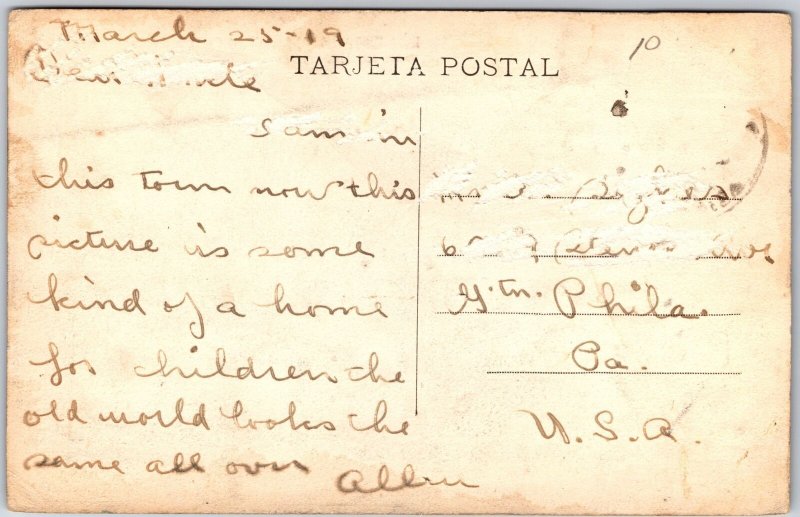 March 25-19
10
TARJETA POSTAL
Dear
I am in
this town now this
picture is some
kind of a home
for children the
old world looks the
same all over
Allen
Ave
Gtn. Phila.
Pa.
U.S.A.